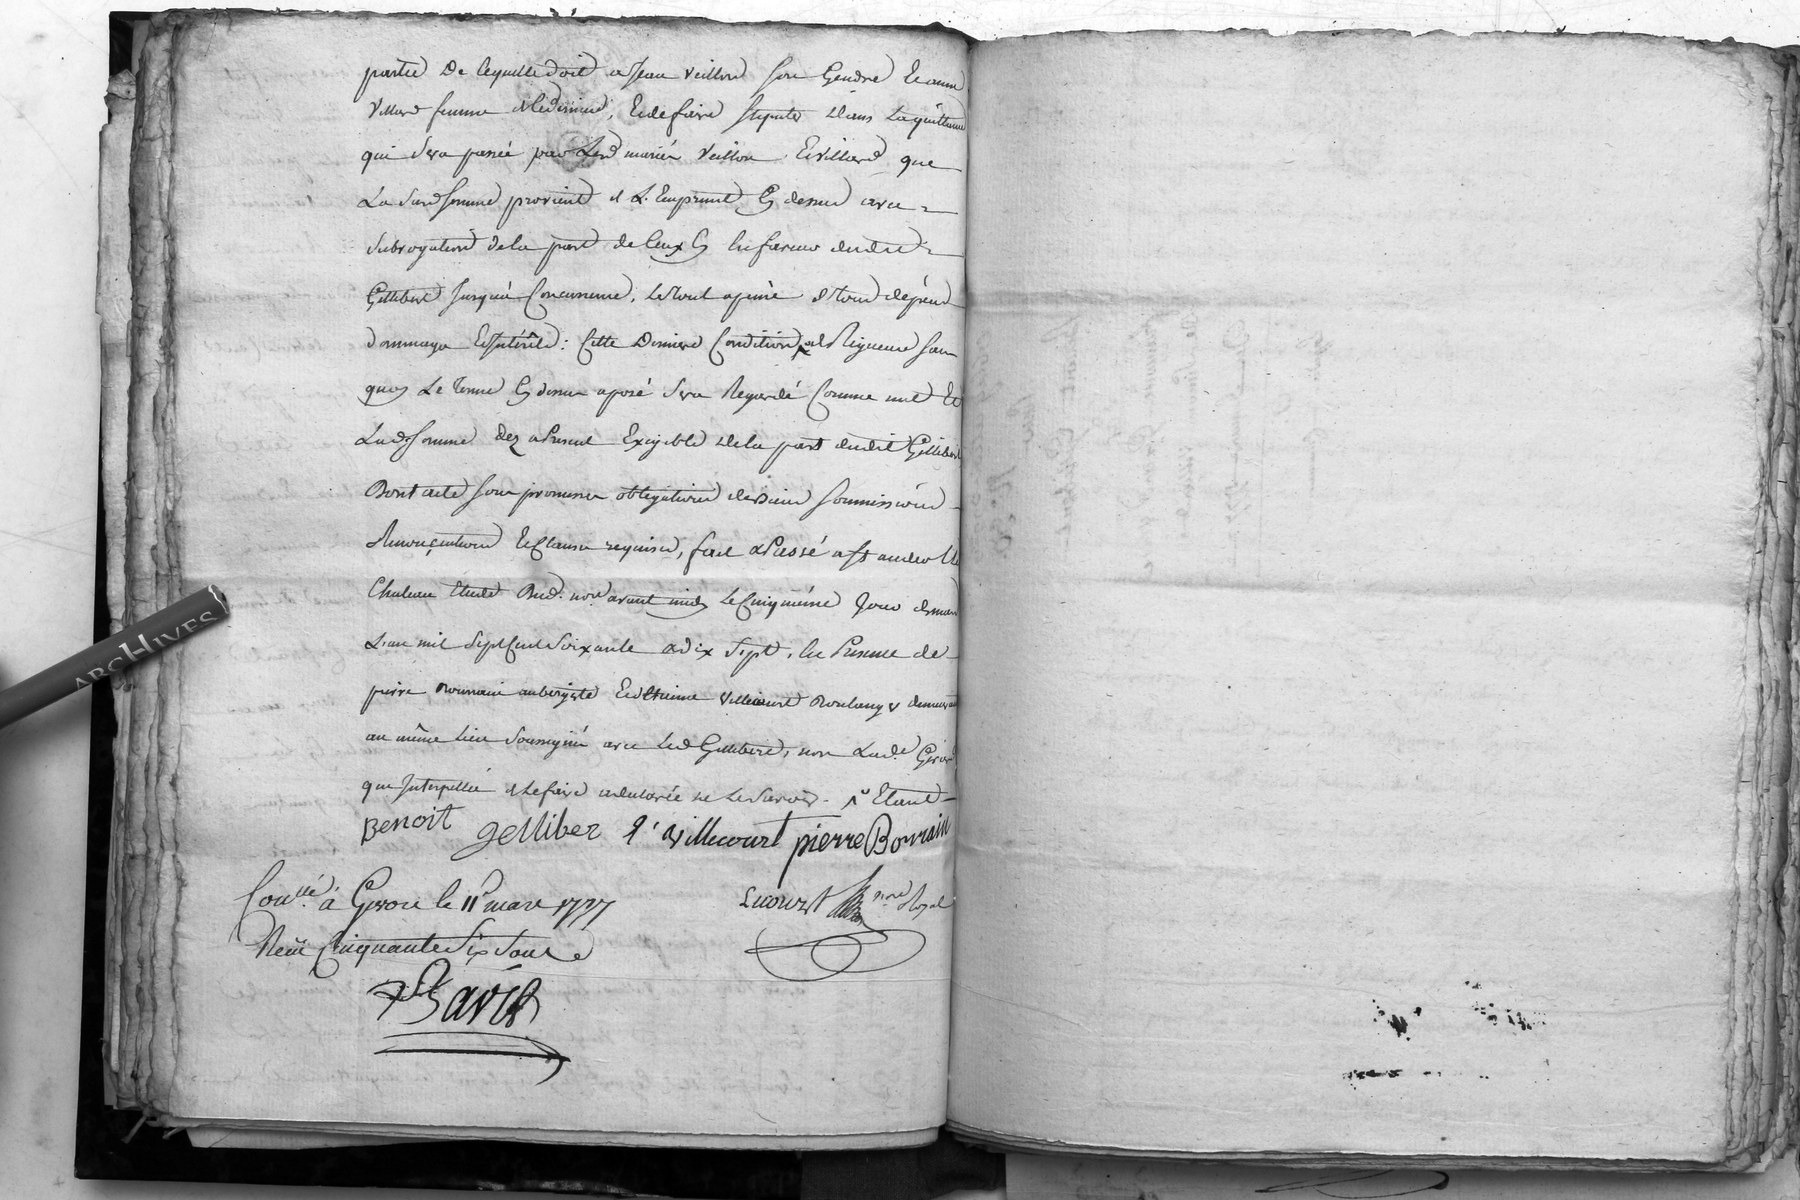 partie de laquelle doit a Jean Veillon son Gendre Et anne
Villard femme de ce dernier, Et de faire stipuler dans la quittance
qui sera passée par Lesd mariés Veillon Et Villard que
La susd somme provient de L'Emprunt Cy dessus avec
subrogation de la part de Ceux Cy En faveur dudit
Gillibert Jusqu'à Concurrence, Le tout a peine de tous dépens
dommages Et Intérêts: Cette Derniere Condition de Rigueur sans
quoy Le terme Cy dessus aposé sera Regardé Comme nul Et
Lad somme dez a Present Exigible de la part dudit Gillibert
Dont acte sous promesses obligations de biens soumissions
Renonciations Et Clauses requises, fait & Passé a St andeol le
Chateau Etude Dud. nore avant midy Le Cinquieme Jour de mars
L'an mil sept Cent soixante & dix sept, En Presence de
pierre Bourrain aubergiste Et Etienne Villecourt Boulanger demeurants
au même Lieu soussignés avec Led Gillibert, non Lad.
que Interpellée de le faire a declarée ne Le savoir.
Benoit gelliber E' villecourt pierre Bourrain
Conllé à Givors le 11e mars 1777
Lucourt nore Royal
Reçu Cinquante Six sous
ARCHIVES